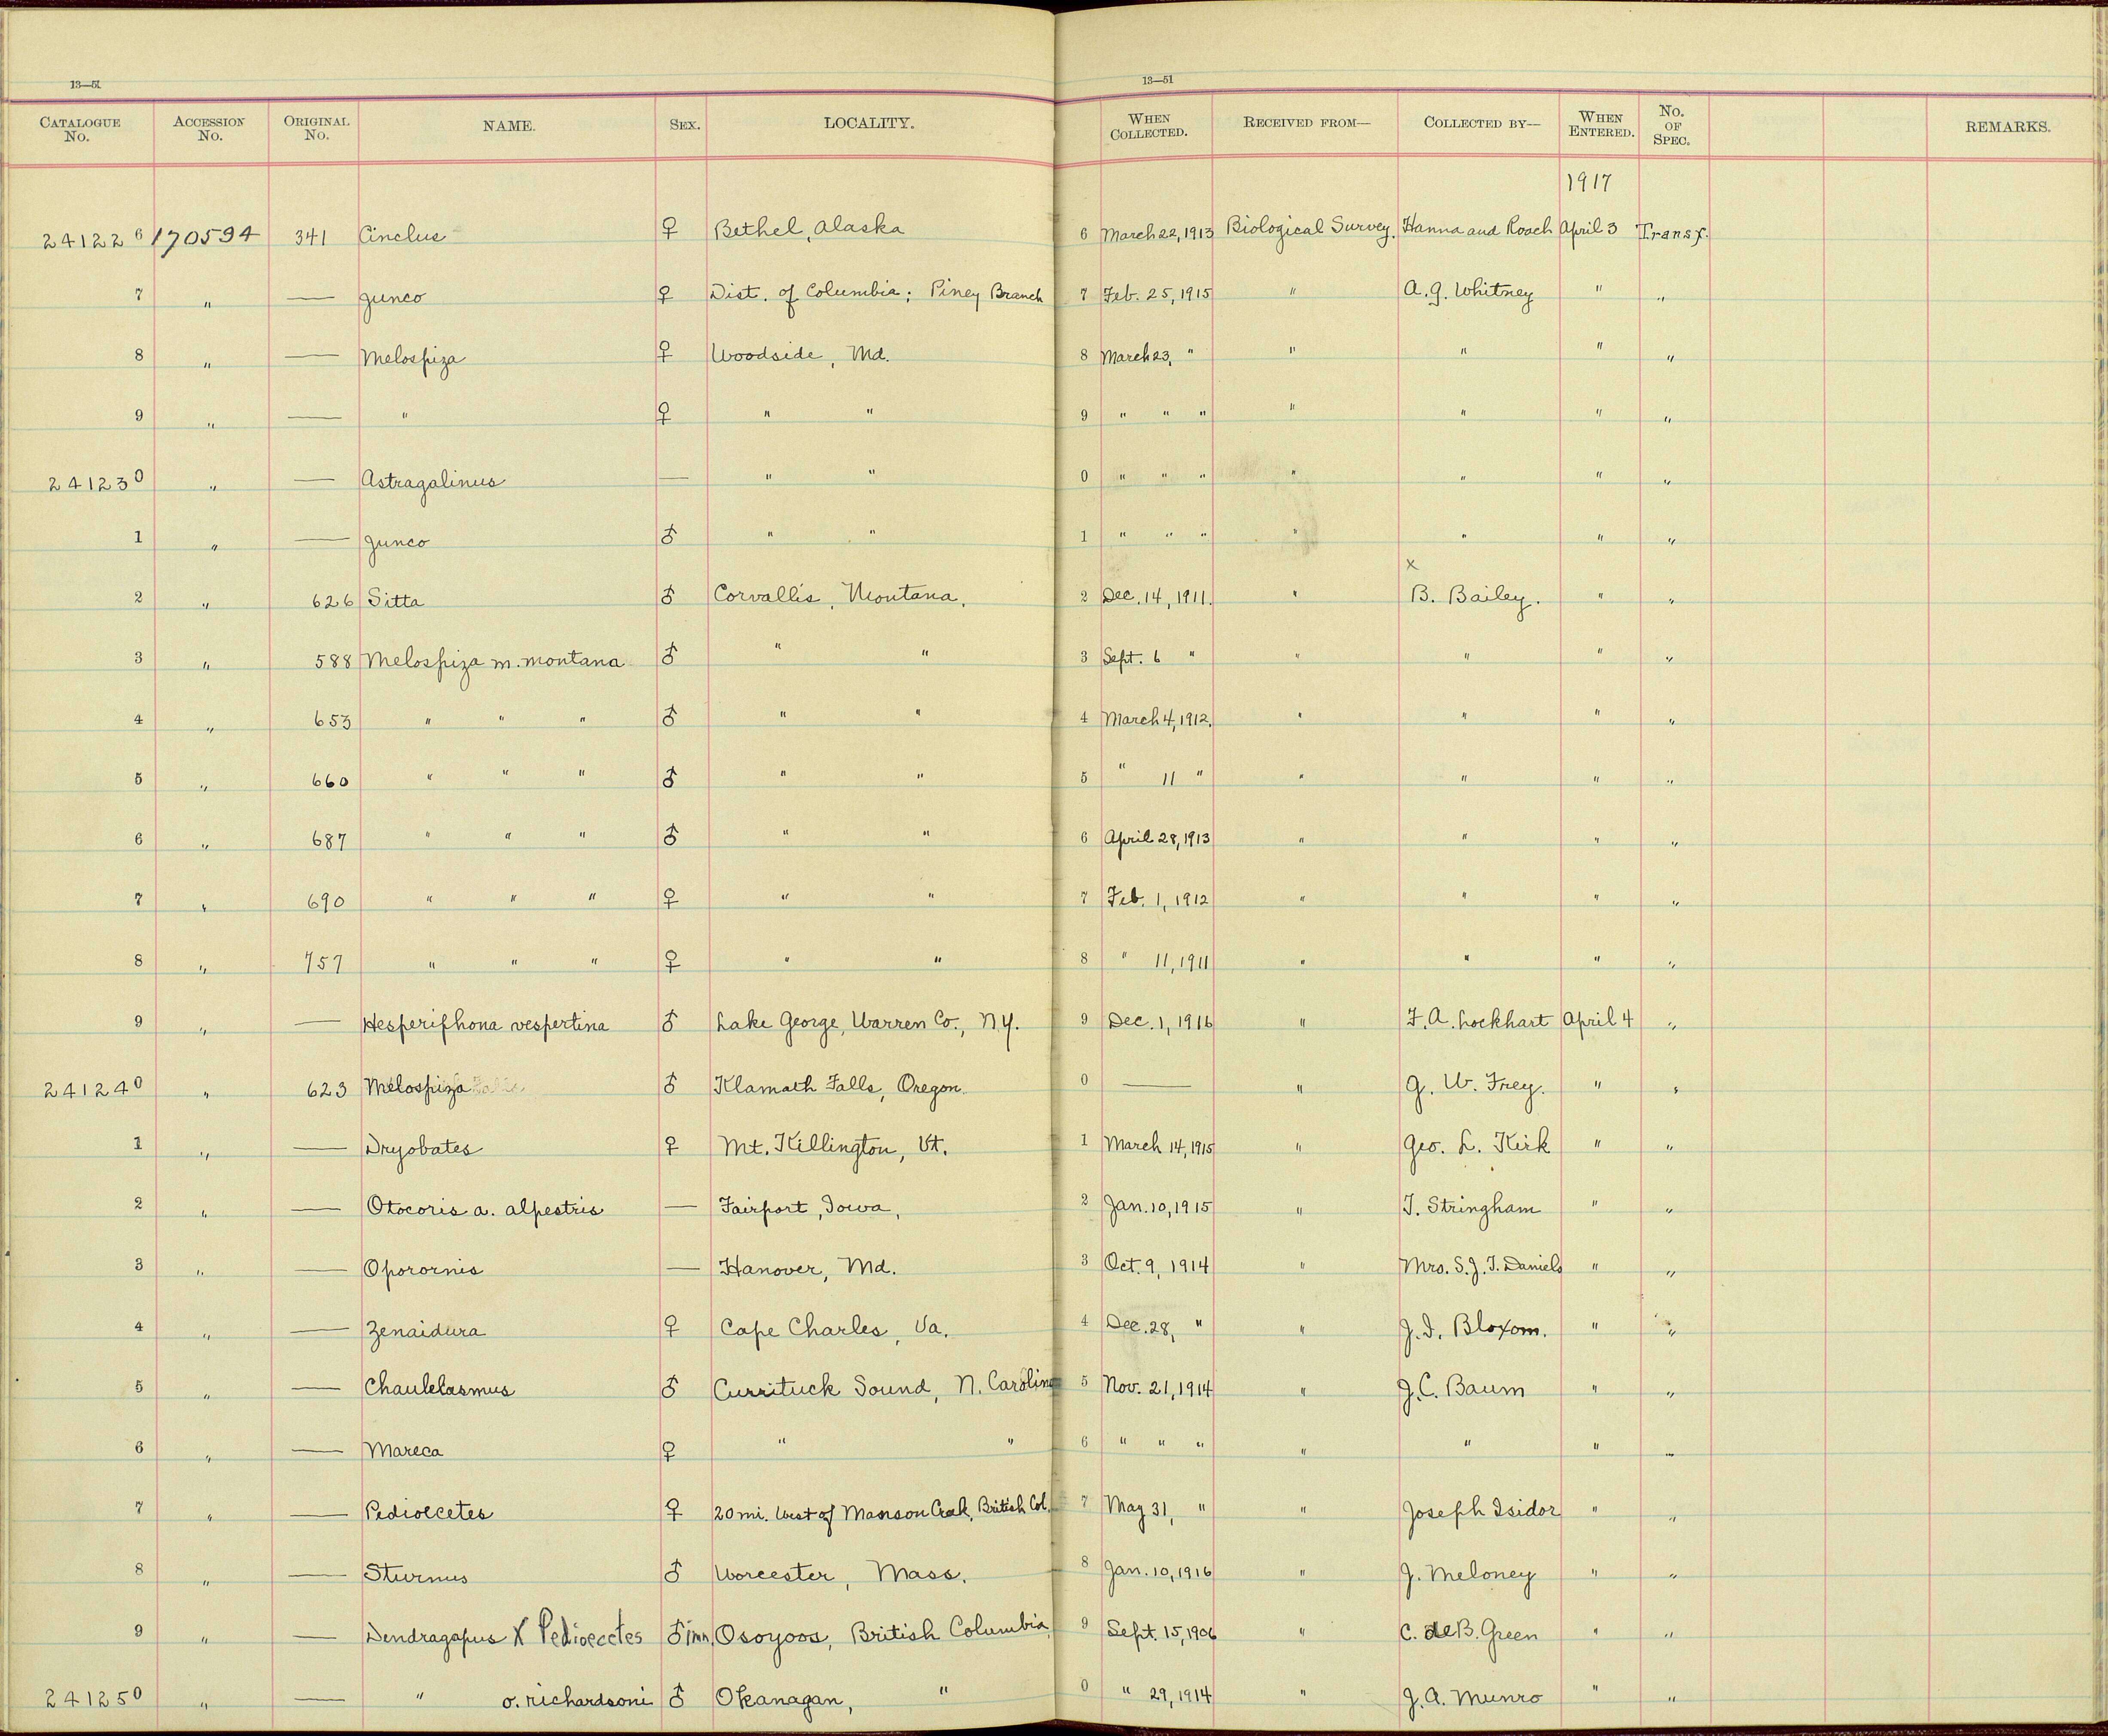 13—51 13—51
CATALOGUE No. ACCESSION No. ORIGINAL No. NAME. SEX. LOCALITY. WHEN COLLECTED. RECEIVED FROM— COLLECTED BY— WHEN ENTERED. No. OF SPEC. REMARKS.
1917
241226 170594 341 Cinclus ♀ Bethel, Alaska 6 March 22, 1913 Biological Survey. Hanna and Roach April 3 Transf.
7 " — Junco ♀ Dist. of Columbia; Piney Branch 7 Feb. 25, 1915 " A. G. Whitney " "
8 " — Melospiza ♀ Woodside, Md. 8 March 23, " " " " "
9 " — " ♀ " " 9 " " " " " " "
241230 " — Astragalinus — " " 0 " " " " " " "
1 " — Junco ♂ " " 1 " " " " " " "
x
2 " 626 Sitta ♂ Corvallis, Montana. 2 Dec. 14, 1911. " B. Bailey. " "
3 " 588 Melospiza m. montana ♂ " " 3 Sept. 6 " " " " "
4 " 653 " " " ♂ " " 4 March 4, 1912. " " " "
5 " 660 " " " ♂ " " 5 " 11 " " " " "
6 " 687 " " " ♂ " " 6 April 28, 1913 " " " "
7 " 690 " " " ♀ " " 7 Feb. 1, 1912 " " " "
8 " 757 " " " ♀ " " 8 " 11, 1911 " " " "
9 " — Hesperiphona vespertina ♂ Lake George, Warren Co., N.Y. 9 Dec. 1, 1916 " F. A. Lockhart April 4 "
241240 " 623 Melospiza ♂ Klamath Falls, Oregon. 0 — " G. W. Frey. " "
1 " — Dryobates ♀ Mt. Killington, Vt. 1 March 14, 1915 " Geo. L. Kirk " "
2 " — Otocoris a. alpestris — Fairport, Iowa, 2 Jan. 10, 1915 " J. Stringham " "
3 " — Oporornis — Hanover, Md. 3 Oct. 9, 1914 " Mrs. S. J. T. Daniels " "
4 " — Zenaidura ♀ Cape Charles, Va. 4 Dec. 28, " " J. D. Bloxom. " "
5 " — Chaulelasmus ♂ Currituck Sound, N. Carolina 5 Nov. 21, 1914 " J. C. Baum " "
6 " — Mareca ♀ " " 6 " " " " " " "
7 " — Pedioecetes ♀ 20 mi. West of Manson Creek, British Col. 7 May 31, " " Joseph Isidor " "
8 " — Sturnus ♂ Worcester, Mass. 8 Jan. 10, 1916 " J. Meloney " "
9 " — Dendragapus X Pedioecetes ♂ imm. Osoyoos, British Columbia 9 Sept. 15, 1906 " C. de B. Green " "
241250 " — " o. richardsoni ♂ Okanagan, " 0 " 29, 1914 " J. A. Munro " "